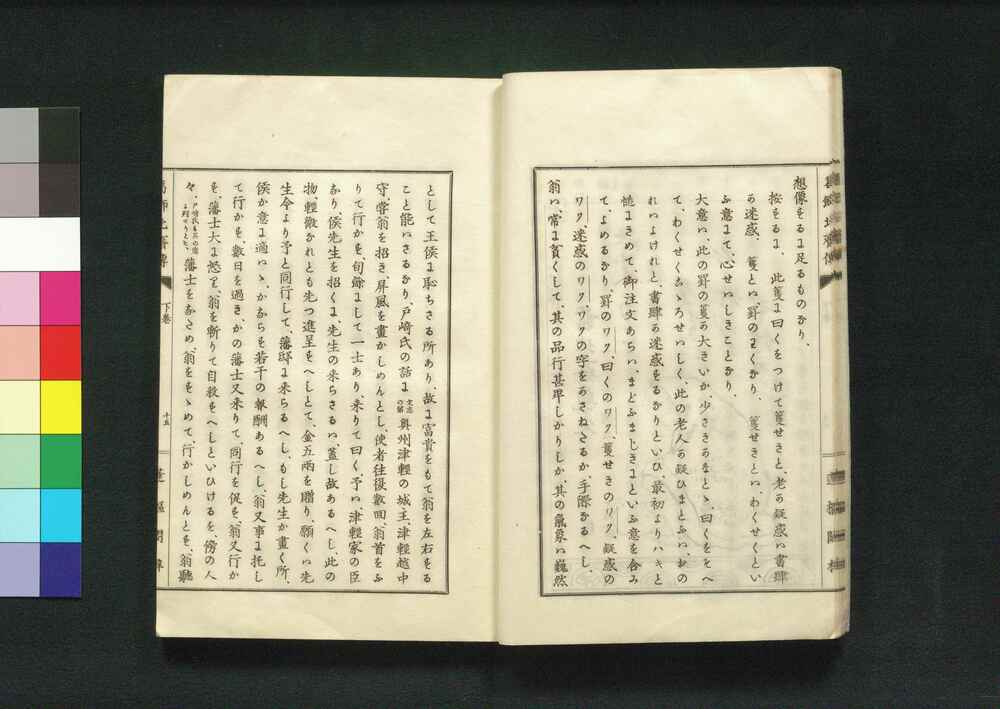 想像をるに足るものなり、
按をるに、此籆に曰くをつけて籆せきと、老の疑惑ハ書肆
の迷惑、籆とハ、罫のわくなり、籆せきとハ、わくせくとい
ふ意にて、心せハしきことなり、
大意ハ、此の罫の籆の大きいか、少さきあなと、曰くをそへ
て、わくせくこゝろせハしく、此の老人の疑ひまとふハ、おの
れハよけれと、書肆の迷惑をるなりといひ、最初よりハキと
極きめて、御注文あらハ、まどふまじきにといふ意を含み
てよめるなり、罫のワク、曰くのワク、籆せきのワク、疑惑の
ワク迷惑のワクワクワクの字をかさねたるか、手際なるへし、
翁ハ、常に貧くして、其の品行甚卑しかりしか、其の氣象ハ巍然
として王侯に恥ちさる所あり、故に富貴をもて翁を左右をる
こと能ハさるなり、戸崎氏の話に文志の弟奥州津輕の城主、津輕越中
守、嘗翁を招き、屏風を畫かしめんとし、使者往復數回、翁首をふ
りて行かを、旬餘にして一士あり、来りて曰く、予ハ津輕家の臣
なり、侯先生を招くに、先生の来らさるハ、蓋し故あるへし、此の
物、輕微なれとも先つ進呈をへしとて、金五兩を贈り、願くハ先
生今より予と同行して、藩邸に来らるへし、もし先生か畫く所、
侯か意に適ハゝ、かならを若干の報酬あるへし、翁又事に托し
て行かを、數日を過き、かの藩士又来りて、同行を促を、翁又行か
を、藩士大に怒り、翁を斬りて自殺をへしといひけるを、傍の人
々、藩士をなため、翁をそゝめて、行かしめんとを、翁聽
下巻
十五